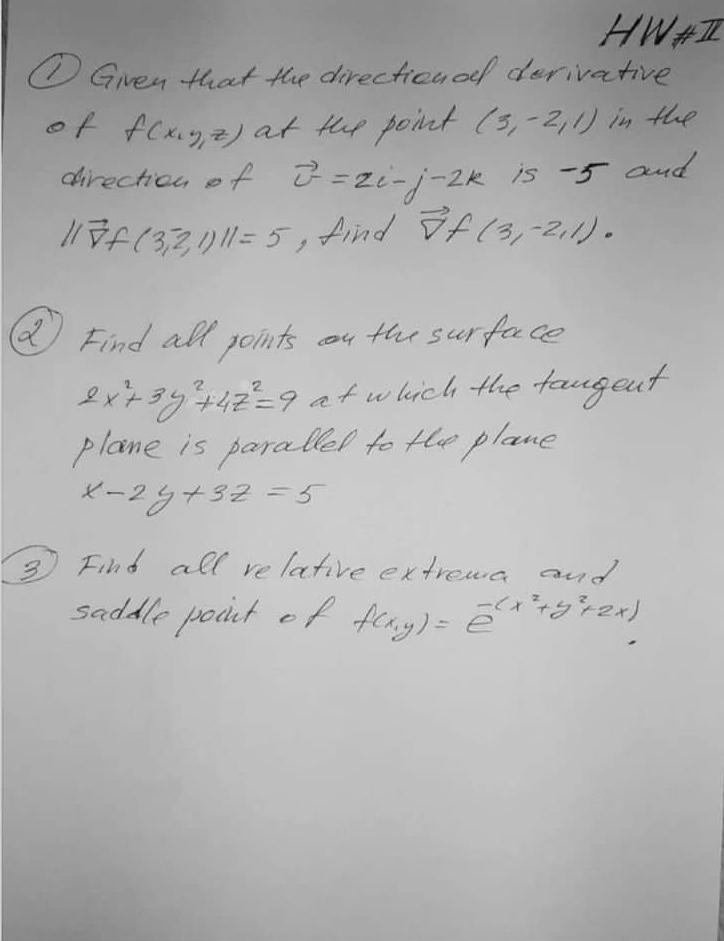 HW#II
① Given that the directional derivative
of f(x,y,z) at the point (3,-2,1) in the
direction of v⃗ = 2i-j-2k is -5 and
||∇⃗f(3,-2,1)|| = 5, find ∇⃗f(3,-2,1).
② Find all points on the surface
2x²+3y²+4z²=9 at which the tangent
plane is parallel to the plane
x-2y+3z=5
③ Find all relative extrema and
saddle point of f(x,y) = e^-(x²+y²+2x).